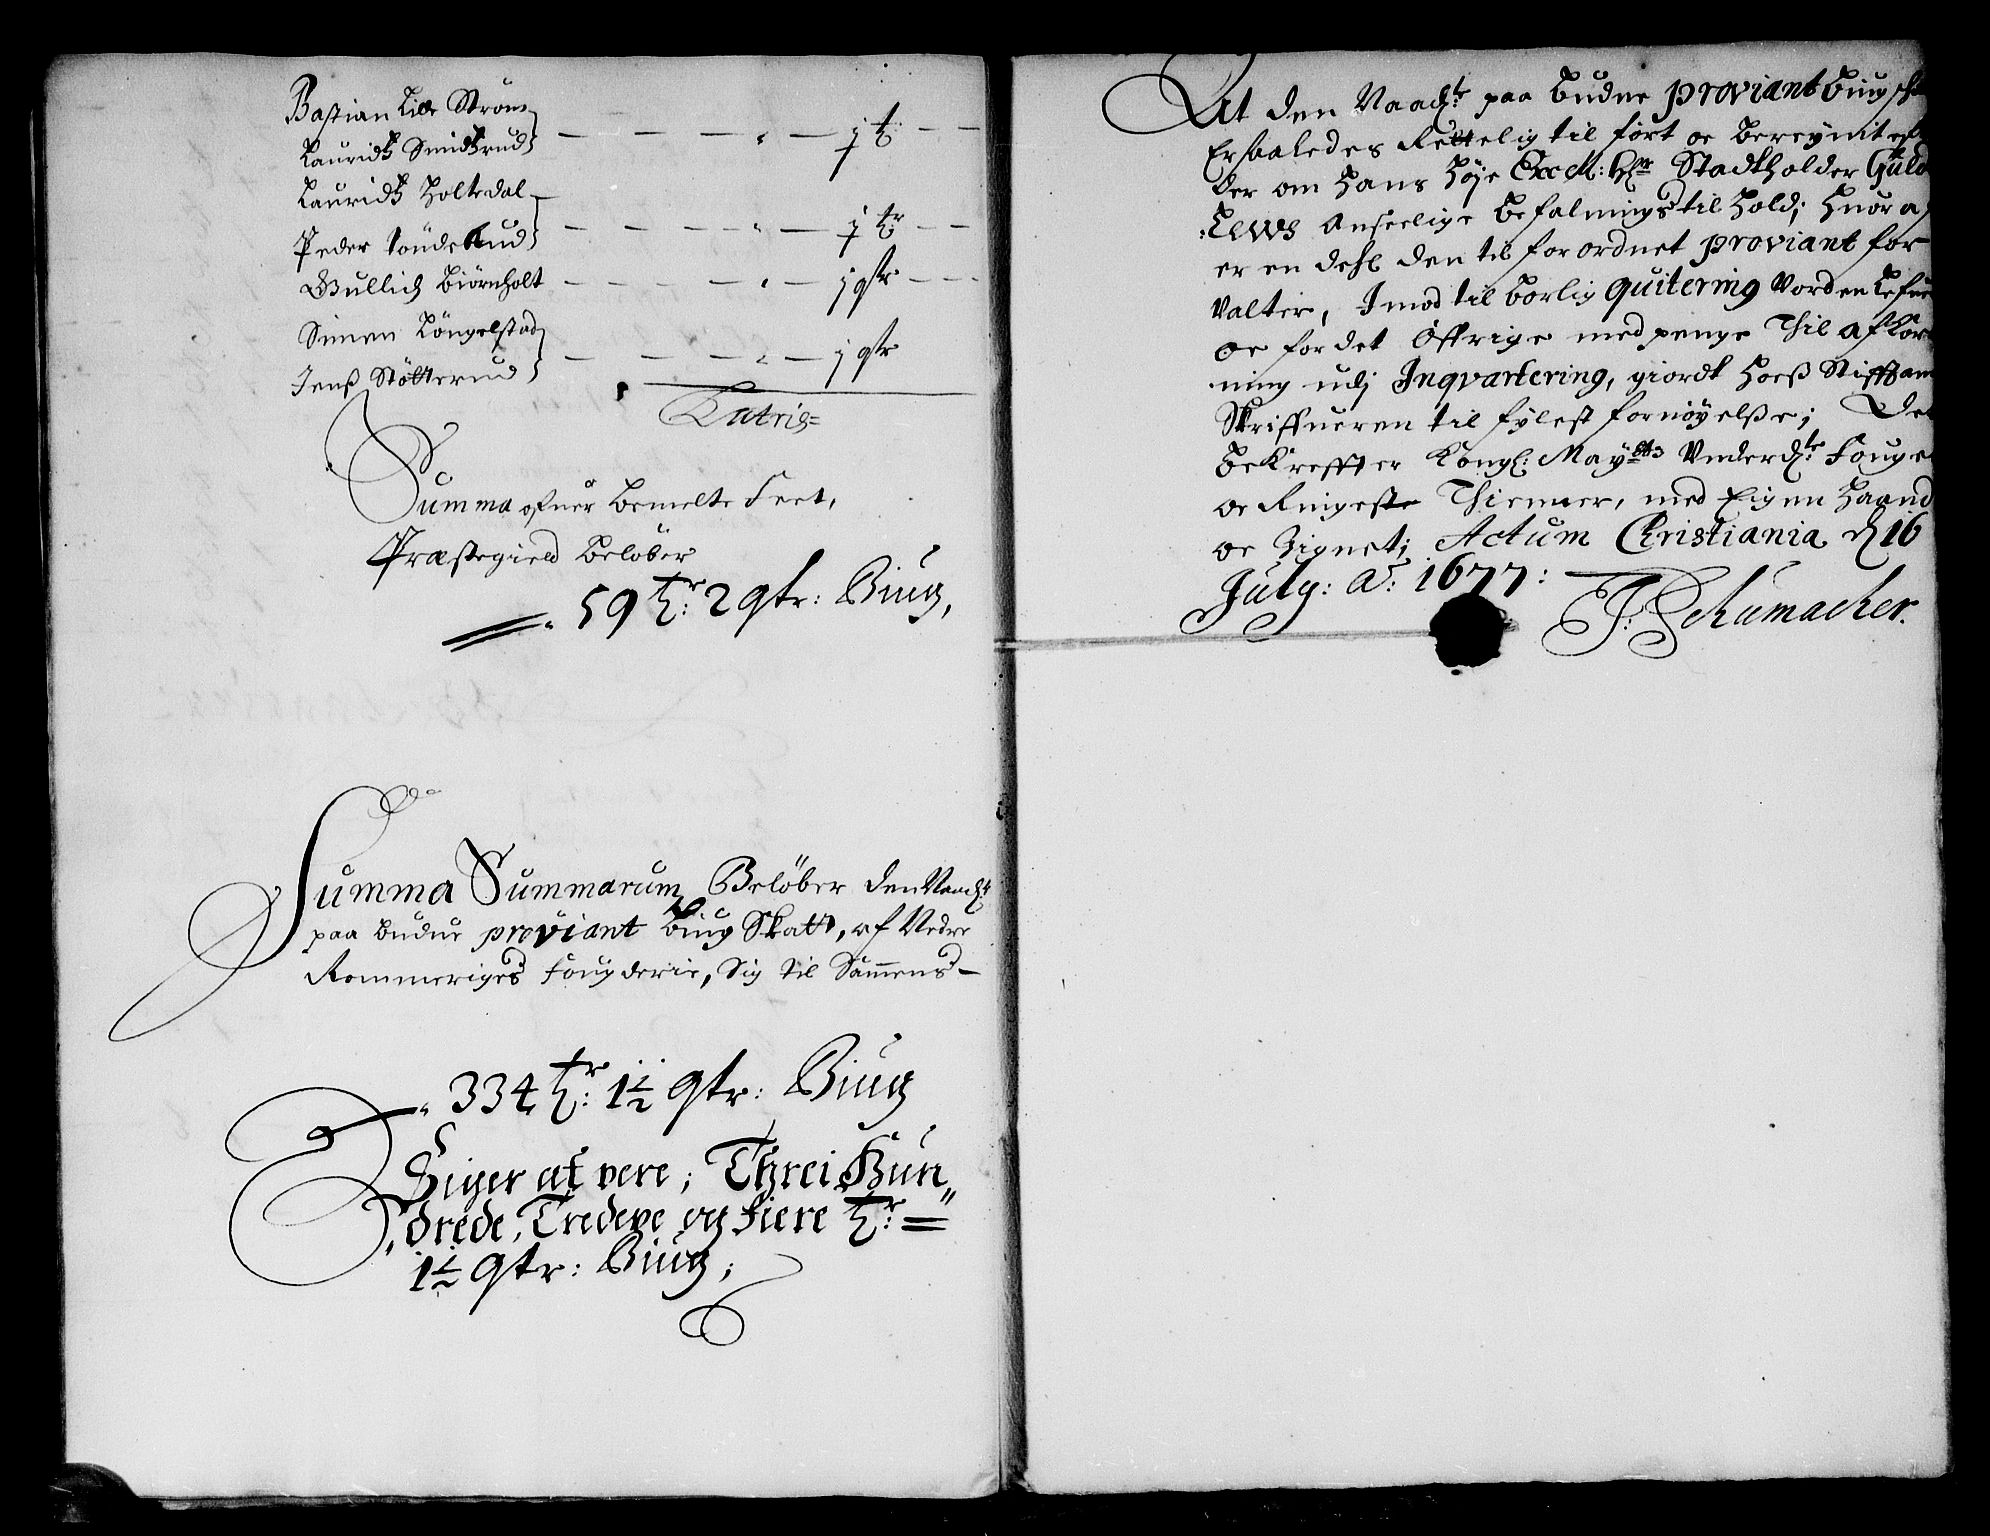 Bastian Lille Ström
Lauridtz Smidtzrud } — — — " — j tr: — —
Lauridtz Holtedal
Peder Sönderud } — — — " — j tr: — —
Gullich Biörnholt — — — " — j qtr — —
Simen Köngelstad
Jenß Stötterud } — — — " — j qtr
Latris=
Summa ofuer bemelte Feet,
Præstegield belöber
59 tr: 2 qtr: Biug,
Summa Summarum Belöber den Naadgt:
paa budne proviant Biug Skatt, af Nedre
Rommeriges Fougderie, Sig til Sammens —
334 tr: 1½ qtr: Biug
Siger at vere; Threi Hun
drede, Tredeve og fiere tr: =
1½ qtr: Biug;
At den Naadgte: paa budne proviant biug
Er saaledes Rettelig til fört oc beregnit
der om Hans Höje Excel: Hr: Stadtholder Güld
:Lews Anseelige befalnings til hold; Huor af
er en dehl den til forordnet proviant for
valter, Imod til börlig quitering vorden Lefue
oc for det Öffrige med penge Thil afkor
ning udj Inqvartering, giordt hoeß Stifftam
Skriffueren til fylest fornöyelße; Det
bekreffter Kongl: Mayttz Underdgte: Fouget
oc Ringeste Thienner, med Eigen Haand
oc Zignet; Actum Christiania d 16
July: Ao: 1677:
J: Schumacher.